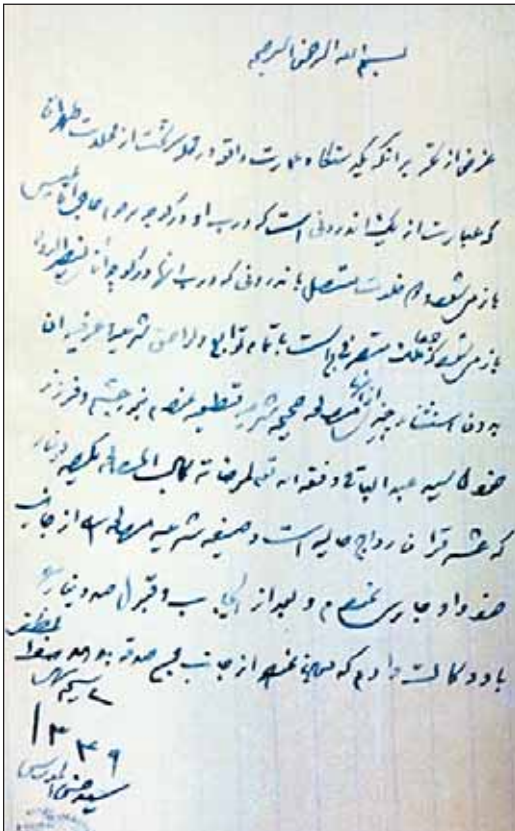 بسم الله الرحمن الرحیم
غرض از تحریر آنکه یکدستگاه عمارت واقعه در قلمستان از محلات طهران
که عبارت از یکباب اندرونی است که درب او در کوچه مرحوم حاجی آقا عیسی
باز می‌شود و هم خلوت متصل باندرونی که درب آنها در کوچه
باز می‌شود که ملک متصرفی است با تمام توابع و لواحق شرعیه و عرفیه آن
بدون استثناء چیزی از آنها مصالحه صحیحه شرعیه قطعیه نمودم بنور چشم و فرزند
خود آقا سید عبدالباقی وفقه الله تعالی لمرضاته بمال المصالحه یکصد دینار
که عشر قران رواج حالیه است و صیغه شرعیه مصالحه را از جانب
خود و او جاری نمودم و بعد از ایجاب و قبول صد دینار را
باو وکالت دادم که از جانب صدقه بدهد
۱۳۳۹
سید حسن المدرس